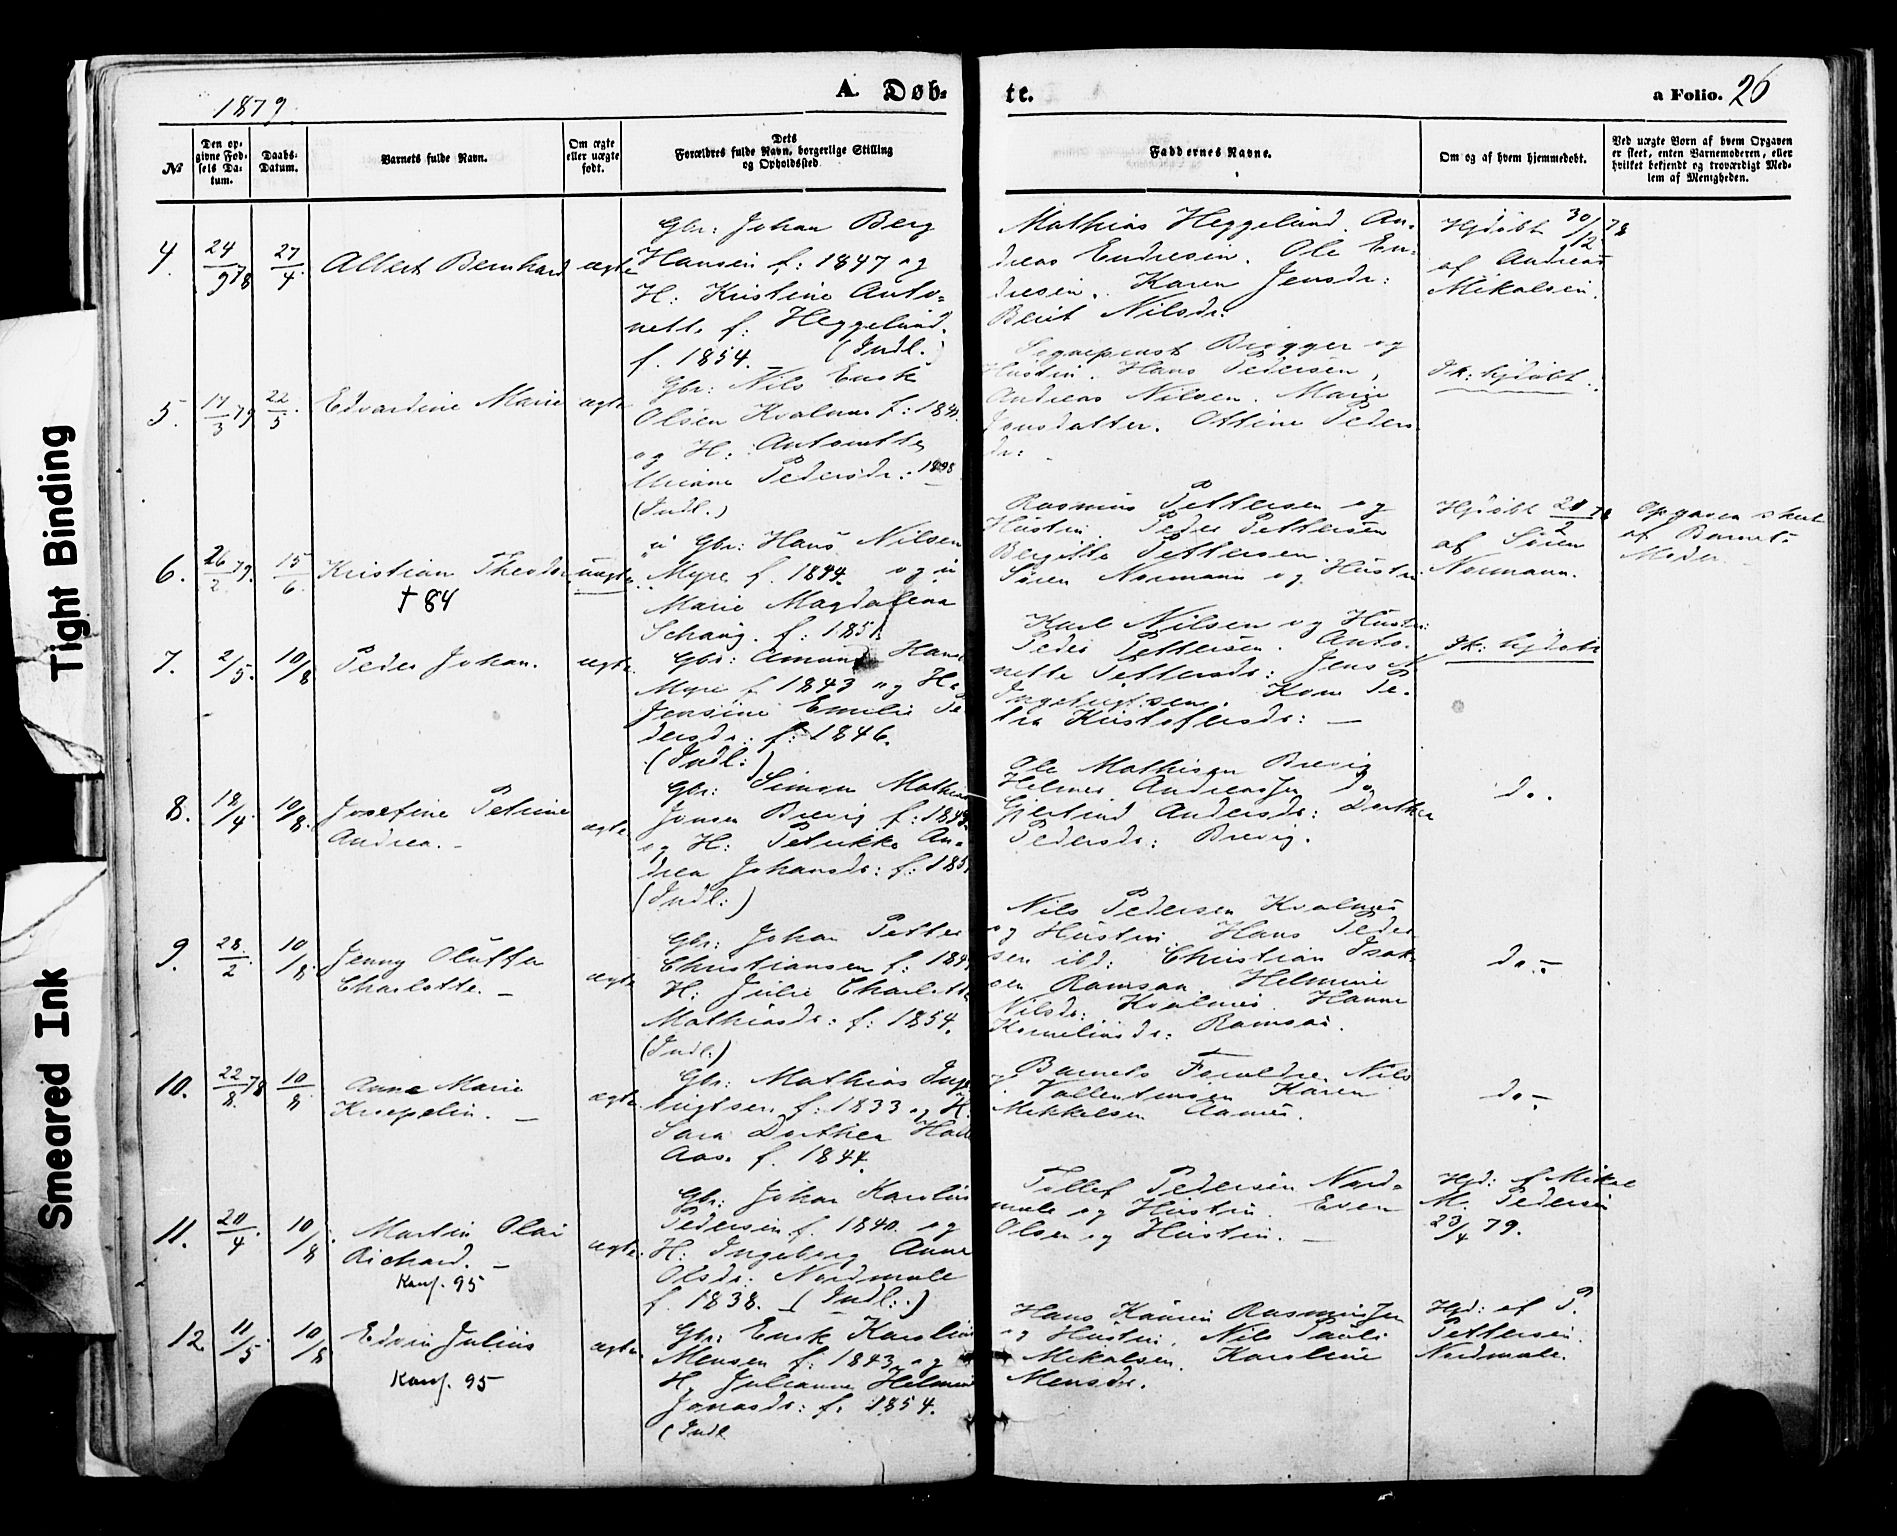 1879.
A. Døb-
te.
a Folio. 26
No
Den op-
givne Fød-
sels Da-
tum.
Daabs-
Datum.
Barnets fulde Navn.
Om ægte
eller uægte
født.
Dets
Forældres fulde Navn, borgerlige Stilling
og Opholdssted
Faddernes Navne.
Om og af hvem hjemmedøbt.
Ved uægte Børn af hvem Opgaven
er skeet, enten Barnemoderen, eller
hvilket bekjendt og troværdigt Med-
lem af Menigheden.
4. 24/9 78 27/4. Albert Bernhard ægte
Gbr: Johan Berg
Hansen f: 1847 og
H: Kristine Anto-
nette f: Heggelund.
f. 1854. (Indl.)
Mathias Heggelund. An-
dreas Endresen. Ole En-
dresen. Karen Jensdr:
Berit Nilsdr:
Hjdøbt 30/12 78
af Andreas
Mikalsen.
5. 17/3 79 22/5. Edvardine Marie ægte
Gbr: Nils Enok
Olsen Kvalnes f: 18
og H: Antonette
Pedersdr:
(Indl.)
Sognepræst Brøgger og
Hustru. Hans Pedersen,
Andreas Nilsen. Marie
Jonsdatter. Ottine Peders
dr:
Ik: hjdøbt.
6. 26/2 79. 15/6 Kristian Theodor uægte
† 84
u Gbr: Hans Nilsen
Myre f. 1844. og u
Marie Magdalena
f: 185
Rasmus Pettersen og
Hustru. Peder Pettersen
Bergitte Pettersen
Søren Normann og Hustru
Hjdøbt 28/2 79
af Søren
Normann.
Opgaven skeet
af Barnets
Moder.
7. 2/5. 10/8 Peder Johan. ægte.
Gbr: Amund Hans
Myre f 1843 og H.
Jensine Emilie Pe
dersdr: f: 1846.
(Indl:)
Karl Nilsen og Hustru:
Peder Pettersen. Anto-
nette Pettersdr: Jens N
Ingebrigtsen. Kone Pe-
tra Kristofersdr: —
Ik: hjdøbt
8. 18/4. 10/8. Josefine Petrine
Andrea. -
ægte
Gbr: Simon Mathias
Jonsen Brevig f: 184
og H: Petrikke An-
drea Johansdr: f: 185
(Indl:)
Ole Mathisen Brevig
Helmer Andreassen do
Gjertrud Andersdr: Dorthea
Pedersdr: Brevig.
do.
9. 28/2 10/8. Jenny Oluffa
Charlotte. —
ægte
Gbr: Johan Petter
Christiansen f: 184
H: Julie Charlotte
Mathiasdr: f: 1854.
(Indl:)
Nils Pedersen Kvalnes
og Hustru Hans Peder
sen ibd: Christian Isak
sen Ramsaa. Helmine
Nilsdr: Kvalnes Hanna
Korneliusdr: Ramsaa.
do. —
10. 22/8. 78 10/8 Anne Marie
Kroepelin. —
ægte.
Gbr: Mathias Inge
brigtsen f: 1833 og H.
Sara Dorthea
Aas. f. 1844.
Barnets Forældre. Nils
Vallentinsen Karen
Mikkelsen Aanes.
do —
11. 20/4. 10/8. Martin Olai
Richard. —
Konf. 95
ægte.
Gbr: Johan Karolius
Pedersen f. 1840. og
H: Ingeborg Anna
Olsdr: Nordmele
f. 1838. (Indl:.)
Tollef Pedersen Nord-
mele og Hustru. Even
Olsen og Hustru. —
Hjd: af Mikal
M. Pedersen
23/4 79.
12 11/5 10/8 Edvin Julius
Konf. 95
ægte.
Gbr: Enok Karolius
Mensen f: 1843. og
H. Julianna Helmine
Jonasdr: f. 1854.
(Indl
Hans Rasmussen
og Hustru, Nils Pauli
Mikalsen. Karoline
Mensdr.
Hjd: af P.
Pettersen.
Nordmele.
Tight Binding
Smeared Ink